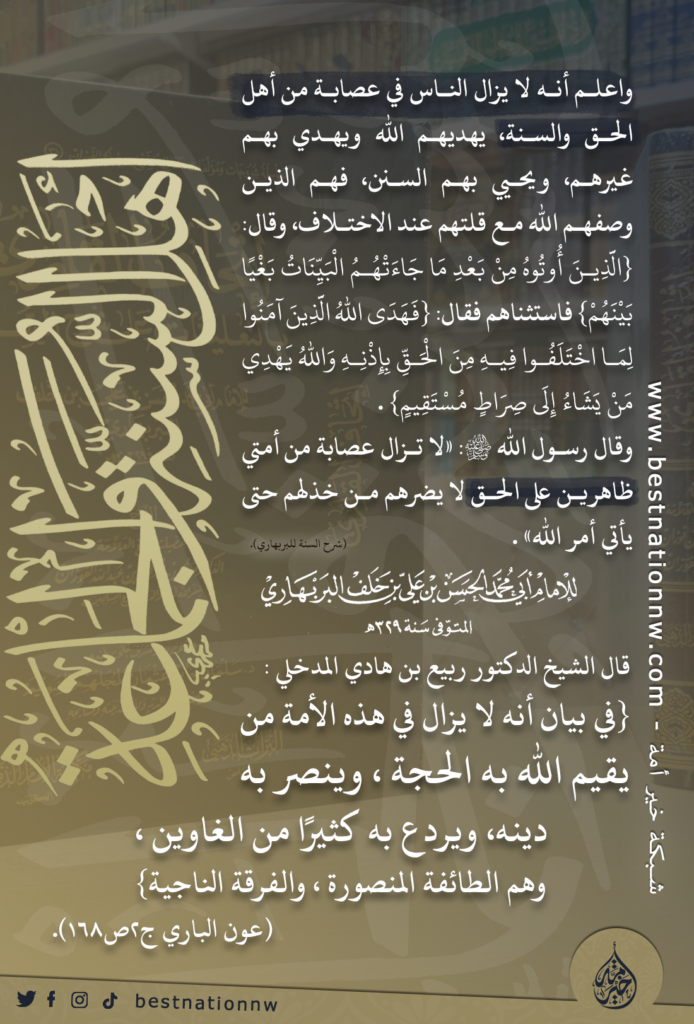 واعلم أنه لا يزال الناس في عصابة من أهل
الحق والسنة، يهديهم الله ويهدي بهم
غيرهم، ويحيي بهم السنن، فهم الذين
وصفهم الله مع قلتهم عند الاختلاف، وقال:
{الَّذِينَ أُوتُوهُ مِنْ بَعْدِ مَا جَاءَتْهُمُ الْبَيِّنَاتُ بَغْيًا
بَيْنَهُمْ} فاستثناهم فقال: {فَهَدَى اللهُ الَّذِينَ آمَنُوا
لِمَا اخْتَلَفُوا فِيهِ مِنَ الْحَقِّ بِإِذْنِهِ وَاللهُ يَهْدِي
مَنْ يَشَاءُ إِلَى صِرَاطٍ مُسْتَقِيمٍ} .
وقال رسول الله ﷺ: «لا تزال عصابة من أمتي
ظاهرين على الحق لا يضرهم من خذلهم حتى
يأتي أمر الله» .
(شرح السنة للبربهاري).
للإمام أبي محمد الحسن بن علي بن خلف البربهاري
المتوفى سنة ٣٢٩هـ
قال الشيخ الدكتور ربيع بن هادي المدخلي :
{في بيان أنه لا يزال في هذه الأمة من
يقيم الله به الحجة ، وينصر به
دينه، ويردع به كثيرًا من الغاوين ،
وهم الطائفة المنصورة ، والفرقة الناجية}
(عون الباري ج٢ص١٦٨).
أهل السنة والجماعة
www.bestnationnw.com - شبكة خير أمة
خير أمة
bestnationnw